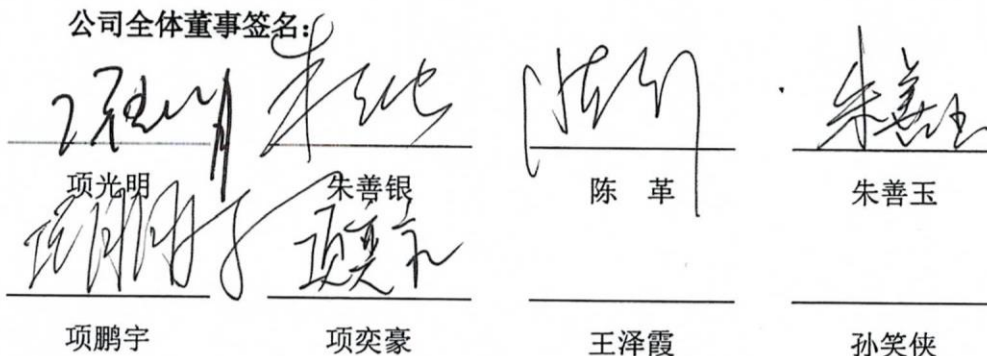 公司全体董事签名：
项光明 朱善银 陈 革 朱善玉
项鹏宇 项奕豪 王泽霞 孙笑侠